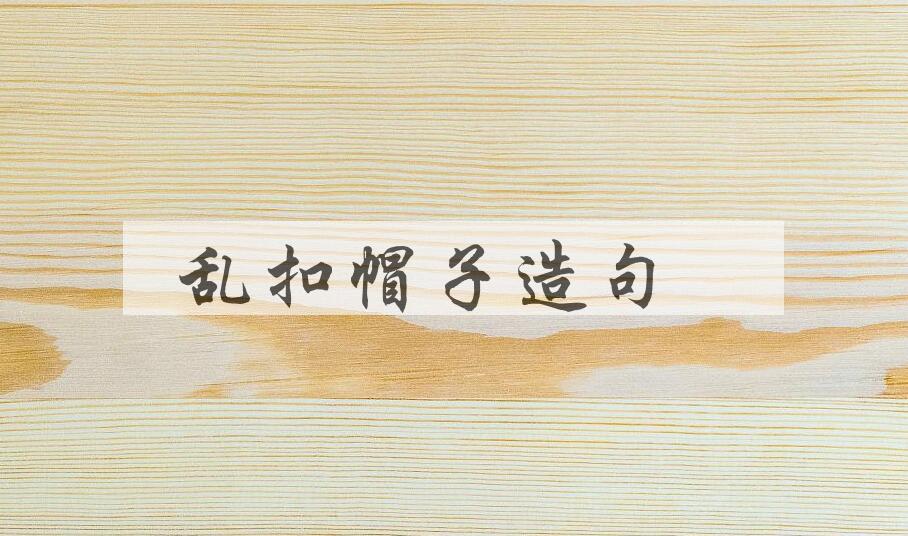 乱扣帽子造句